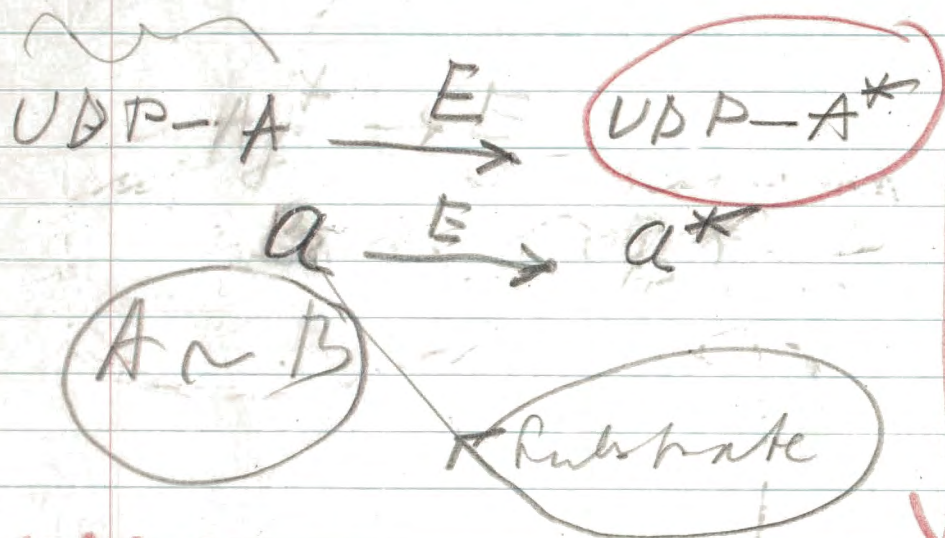 UDP-A E → UDP-A*
a E → a*
A ~ B
Substrate